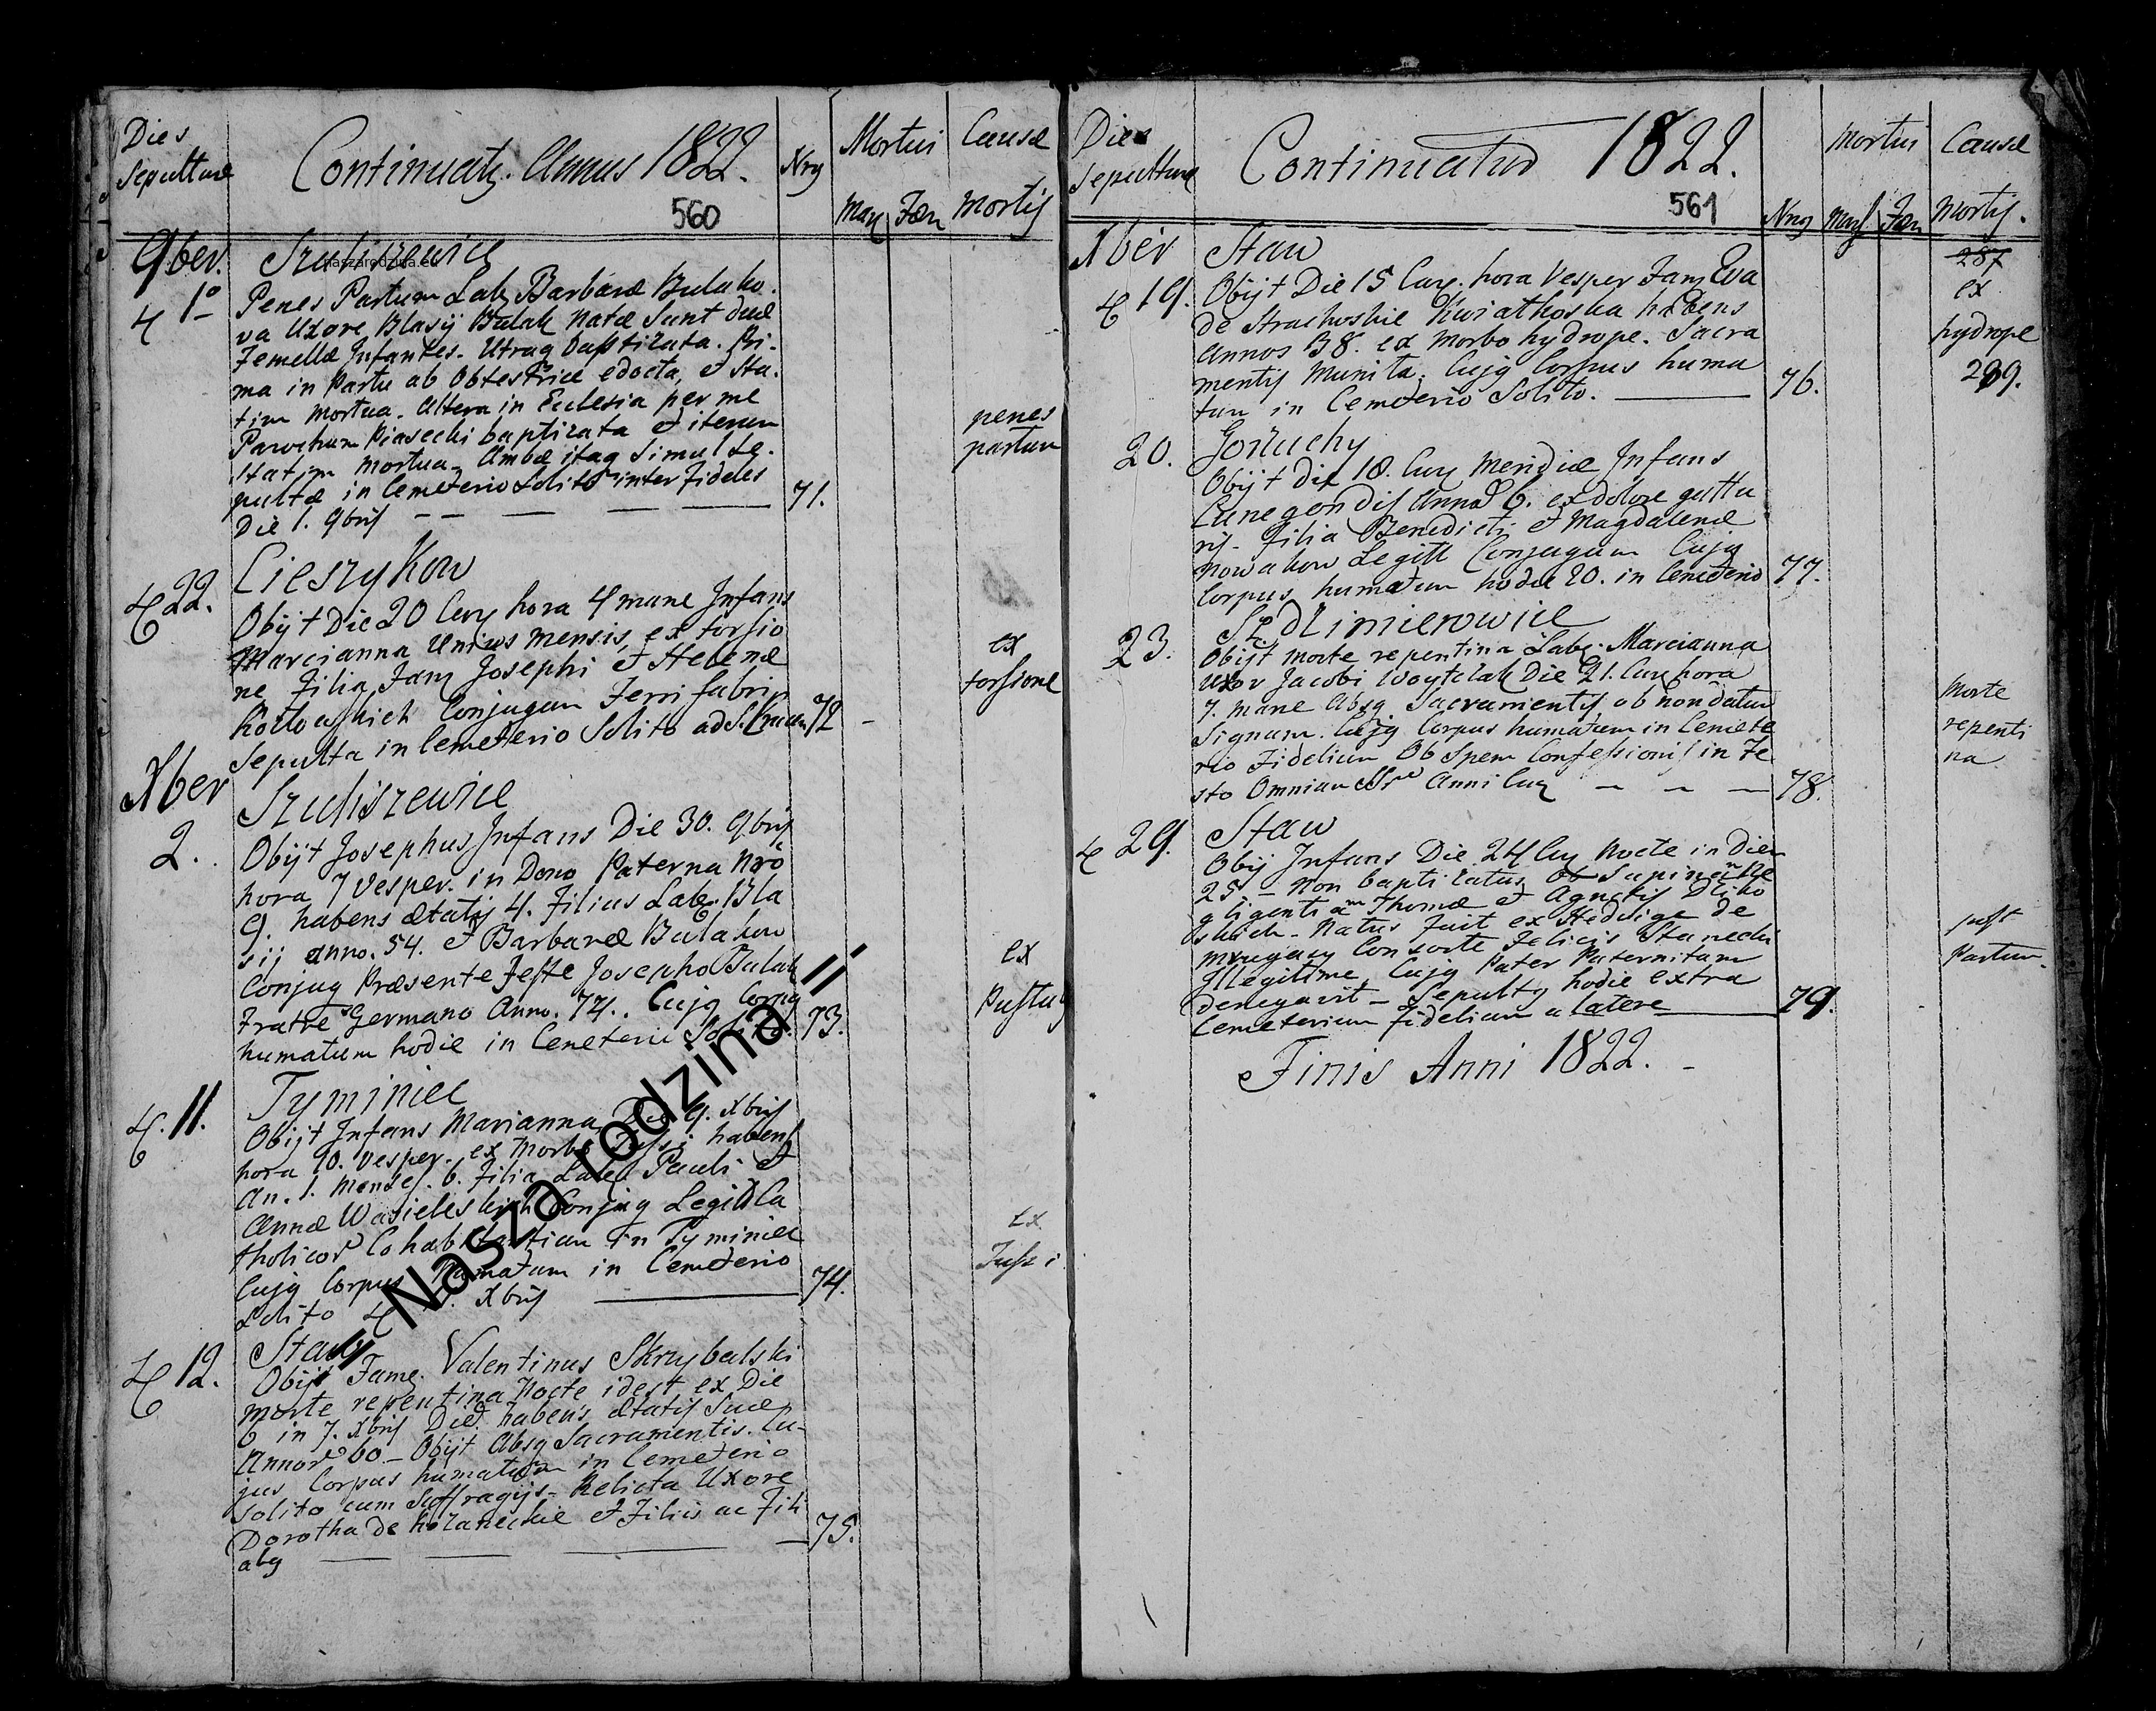 Dies
Sepulturæ
Continuatq. Annus 1822.
Nrq
Mortui
Causæ
560
Mas
Fæm
Mortis
9ber.
Szuliszewice
naszarodzina.eu
1º
Penes Partum Lab. Barbaræ Bulako
va Uxore Blasij Bulak Natæ Sunt duæ
Femellæ Infantes. Utraq Baptizata. Pri-
ma in Partu ab Obstetrice edocta, et Sta-
tim Mortua. Altera in Eclesia per me
Parochum Piasecki baptizata et iterum
Statim Mortua. Ambæ itaq Simul Se-
pultæ in Cemeterio Solito inter Fideles
Die 1. 9bris
71.
penes
partum
22.
Cieszykow
Obijt Die 20 Cur. hora 4 mane Infans
Marcianna Unius Mensis, ex torsio
ne Filia Fam. Josephi et Helenæ
Conjugum Ferri fabri
Sepulta in Cemeterio Solito ad S. Crucem
72
ex
torsione
Xber
Szuliszewice
2.
Obijt Josephus Infans Die 30. 9bris
hora 7 Vesper. in Domo Paterna Nrō
9. habens ætatis 4. Filius Lab. Bla
sij anno. 54. et Barbaræ Bulakow
Conjug Præsente Teste Josepho Bulak
Fratre Germano Anno. 74. Cujq Corpus
humatum hodie in Cemeterio Solito
73.
ex
Pustulis
11.
Tyminiec
Obijt Infans Marianna Die 9. Xbris
hora 10. Vesper. ex Morbo Tussi habens
An. 1. Menses. 6. Filia Lab. Pauli et
Annæ Wasieleskich Conjug Legitt Ca
tholicor Cohabitantium in Tyminiec
Cujq Corpus humatum in Cemeterio
Solito Xbris
74.
ex
Tussi
Nasza rodzina
12.
Staw
Obijt Fame. Valentinus Skrzybalski
Morte repentina Nocte idest ex Die
6 in 7. Xbris Die habens ætatis Suæ
Annor 60 – Obijt Absq Sacramentis. Cu-
jus Corpus humatum in Cemeterio
Solito cum Suffragijs – Relicta Uxore
Dorotha de Kozaneckie et Filiis ac Fili
abq
75.
Dies
Sepulturæ
Continuatus 1822.
561
Mortui
Causæ
Nrq
Mas
Fæm
Mortis.
Xber
Staw
287
19.
Obijt Die 15 Cur. hora Vesper Fam Eva
de Strachoskie Kwiatkoska habens
annos 38. ex Morbo hydrope. Sacra
mentis Munita. Cujq Corpus huma
tum in Cemeterio Solito.
76.
ex
hydrope
289.
20.
Gorzuchy
Obijt Die 18. Cur Meridiæ Infans
Cunegondis Anno 6. ex dolore guttu
ris – Filia Benedicti et Magdalenæ
Nowakow Legitt Conjugum Cujq
Corpus humatum hodie 20. in Cemeterio
77.
23.
Obijt Morte repentina Lab. Marcianna
Uxor Jacobi Woytclak Die 21. Cur hora
7. mane Absq Sacramentis ob non datum
Signum. Cujq Corpus humatum in Cemete
rio Fidelium Ob Spem Confessionis in Fe
sto Omnium SSr Anni Cur
78.
Morte
repenti
na
29.
Staw
Obij Infans Die 24 Cur Nocte in Diem
25 – Non baptizatus Ob Supinam Ne
gligentiam Thomæ et Agnetis
Natus Fuit ex Hedvige de
Consorte Felicis Stanecki
Illegitime Cujq Pater Paternitam
denegavit – Sepultq hodie extra
Cemeterium fidelium a latere
79.
post
Partum
Finis Anni 1822.